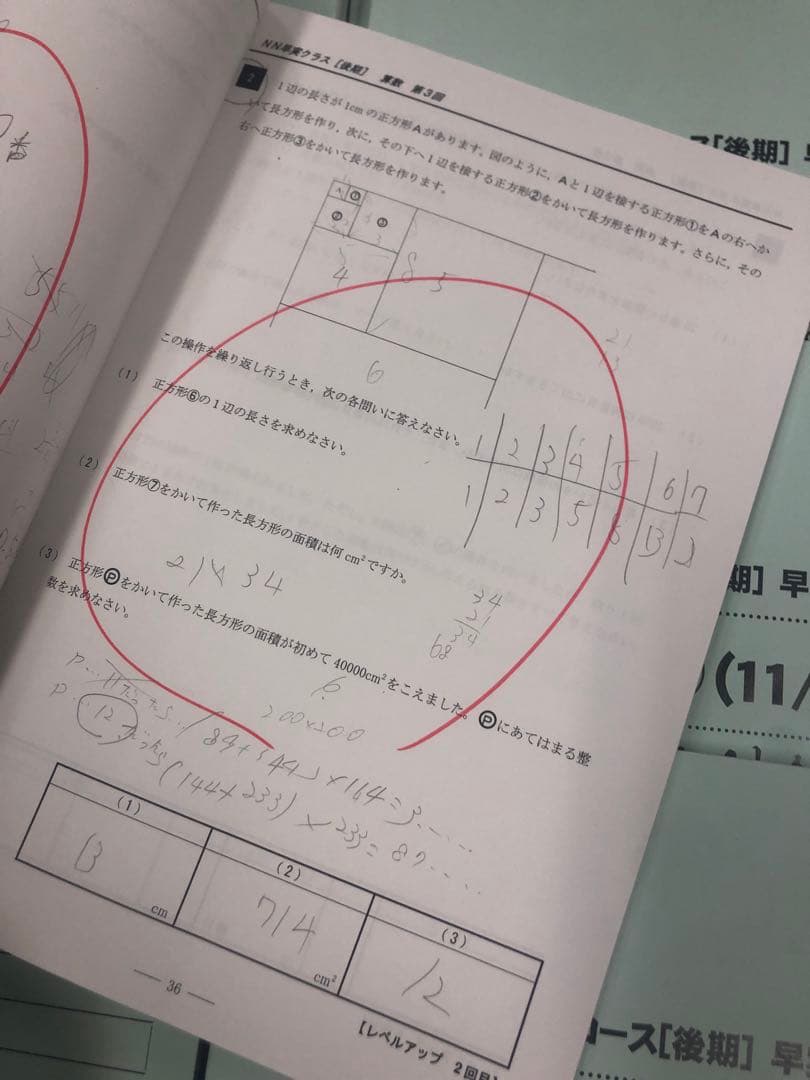 NN早実クラス［後期］ 算数 第3回
2
1辺の長さが1cmの正方形Aがあります。図のように，Aと1辺を接する正方形①をAの右へか
いて長方形を作り，次に，その下へ1辺を接する正方形②をかいて長方形を作ります。さらに，その
右へ正方形③をかいて長方形を作ります。
A ①
② ③
4 8 5
6
21
13
この操作を繰り返し行うとき，次の各問いに答えなさい。
(1) 正方形⑥の1辺の長さを求めなさい。
1 2 3 4 5 6 7
1 2 3 5 8 13 2
(2) 正方形⑦をかいて作った長方形の面積は何cm²ですか。
21× 34
34
21
34
68
(3) 正方形Ⓟをかいて作った長方形の面積が初めて40000cm²をこえました。Ⓟにあてはまる整
数を求めなさい。
200×200
P…12だったら(144+233)×233=87.....
(1) (2) (3)
13 cm 714 cm² 12
― 36 ―
【レベルアップ 2回目】
ス［後期］早
期］早
(11/
コース［後期］早
番